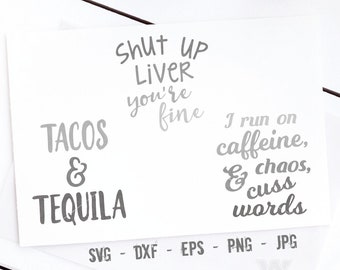 Shut up
Liver
you're
fine
TACOS
&
TEQUILA
I run on
caffeine,
& chaos,
cuss
words
SVG - DXF - EPS - PNG - JPG